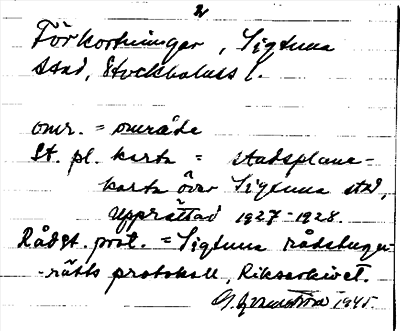 2
Förkortningar, Sigtuna
stad, Stockholms l.
omr. = område
St. pl. karta = stadsplane-
karta över Sigtuna stad,
upprättad 1927-1928.
Rådst. prot. = Sigtuna rådstugu-
-rätts protokoll, Riksarkivet.
1945